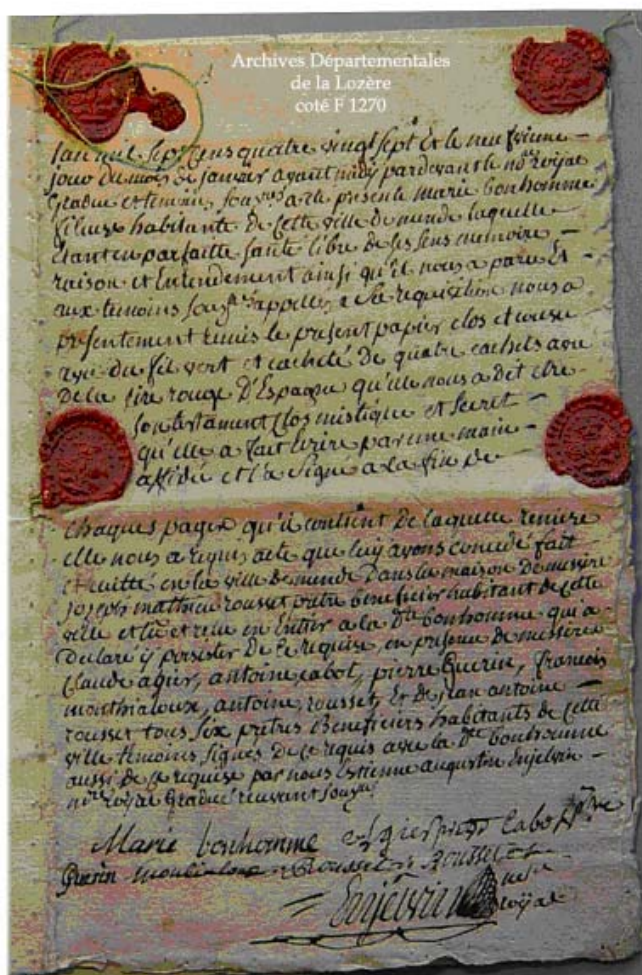 Archives Départementales
de la Lozère
coté F 1270
Lan mil sept cens quatre vingt sept et le neufvieme
jour du mois de janvier avant midy pardevant le nore roijal
gradue et temoins sousnes a ete presente marie bonhomme
fileuse habitante de cette ville de mende laquelle
etant en parfaitte santé libre de ses sens memoire
raison et Entendement ainsi qu'il nous a paru Et
aux temoins sousnes appelles a sa requisition nous a
presentement remis le present papier clos et cousu
avec du fil vert et cacheté de quatre cachets avec
de la sire rouge D'Espagne qu'elle nous a dit etre
son testament Clos mistique et secret
qu'elle a fait ecrire par une main
affidée et l'a signé a la fin de
chaques pages qu'il contient de laquelle remise
elle nous a requis acte que luy avons concedé fait
et recitté en la ville de mende Dans la maison de messire
joseph matthieu rousset pretre beneficier habitant de cette
ville et lu et relu en Entier a la dte bonhomme qui a
Declaré y persister De ce requise, en presence de messires
Claude agier, antoine cabot, pierre Guerin, francois
monthialoux, antoine rousset, Et de jean antoine
rousset tous six pretres Beneficiers habitants de cette
ville temoins signés de ce requis avec la dte bonhomme
aussi de ce requise par nous Estienne augustin Enjelvin
nore roijal Gradué recevant sousne
Marie bonhomme agier pretre Cabot ptre
Guerin Rousset Rousset
Enjelvin nore
roijal